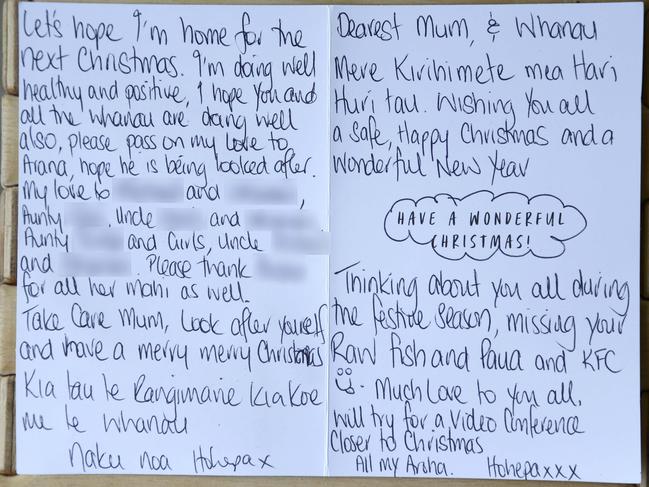 Let's hope I'm home for the
next Christmas. I'm doing well
healthy and positive, I hope you and
all the whanau are doing well
also, please pass on my love to
Arana, hope he is being looked after.
My love to and ,
Aunty , Uncle and
Aunty and Girls, Uncle
and . Please thank
for all her mahi as well.
Take Care Mum, Look after yourself
and have a merry merry Christmas
Kia tau te Rangimarie Kia Koe
me te whanau
Naku noa Hohepa x
Dearest Mum, & Whanau
Mere Kirihimete mea Hari
Huri tau. Wishing you all
a safe, Happy Christmas and a
wonderful New Year
HAVE A WONDERFUL
CHRISTMAS!
Thinking about you all during
the festive season, missing your
Raw fish and Paua and KFC
☺. Much Love to you all,
will try for a Video Conference
Closer to Christmas
All my Aroha. Hohepa xxx